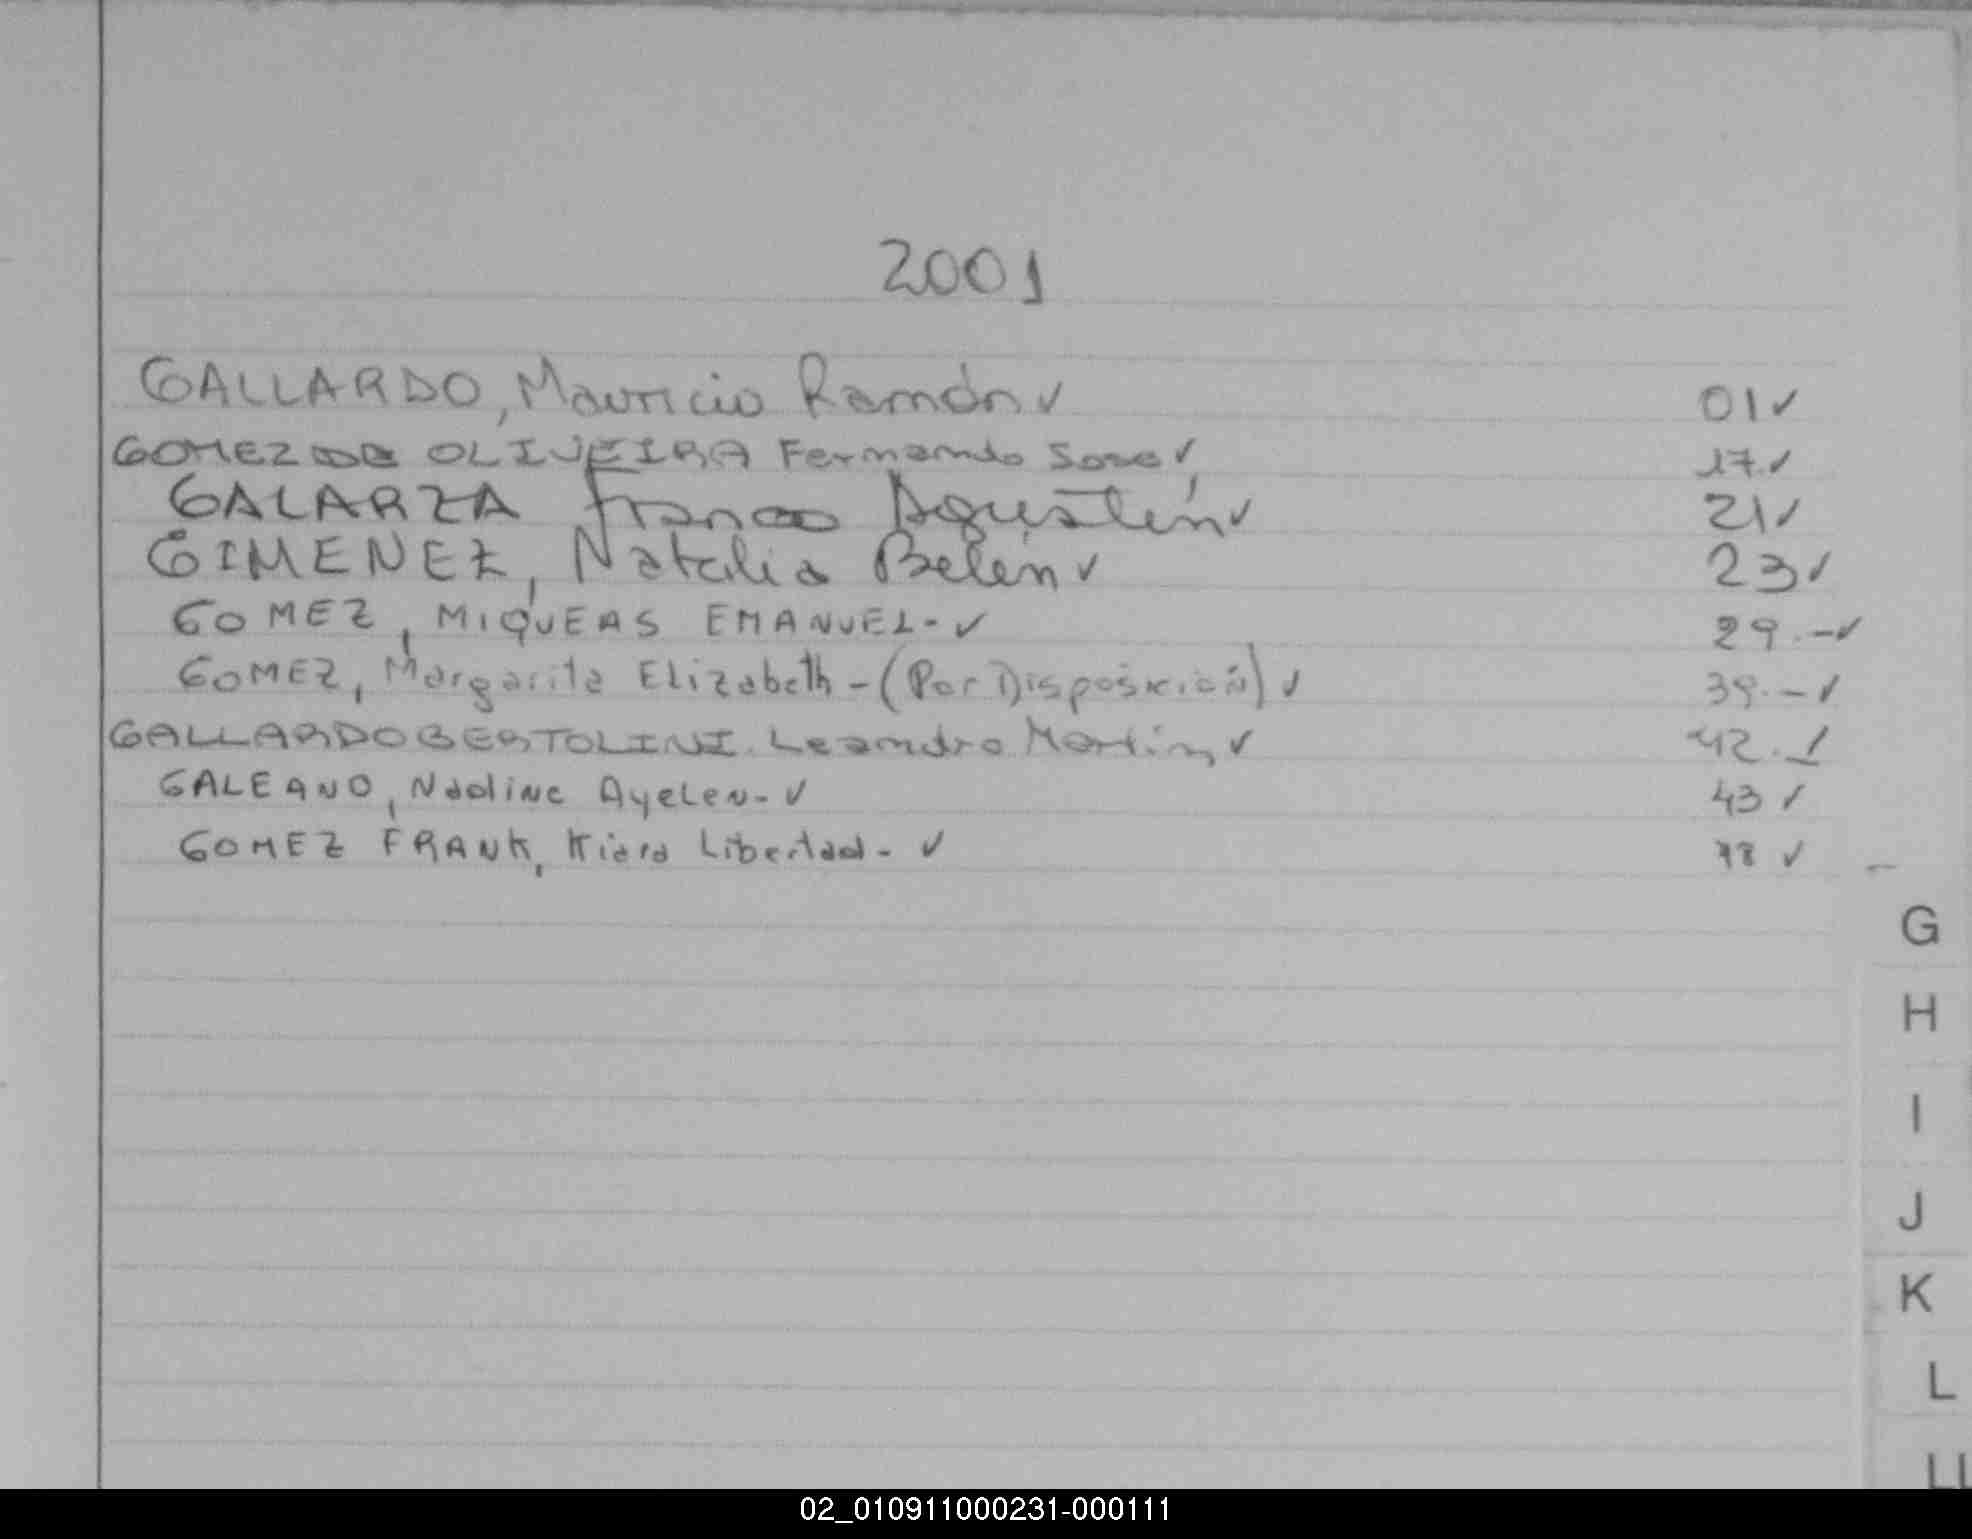 2001
GALLARDO, Mauricio Ramón ✓ 01 ✓
GOMEZ DE OLIVEIRA Fernando ✓ 17. ✓
GALARZA Franco Agustín ✓ 21 ✓
GIMENEZ, Natalia Belén ✓ 23 ✓
GOMEZ, MIQUEAS EMANUEL. - ✓ 29. - ✓
GOMEZ, Margarita Elizabeth - (Por Disposición) ✓ 39. - ✓
GALLARDO BERTOLINI Leandro Martín, ✓ 42. ✓
GALEANO, Nadine Ayelen - ✓ 43 ✓
GOMEZ FRANK, Kiara Libertad - ✓ ✓
G
H
I
J
K
L
LL
02_010911000231-000111